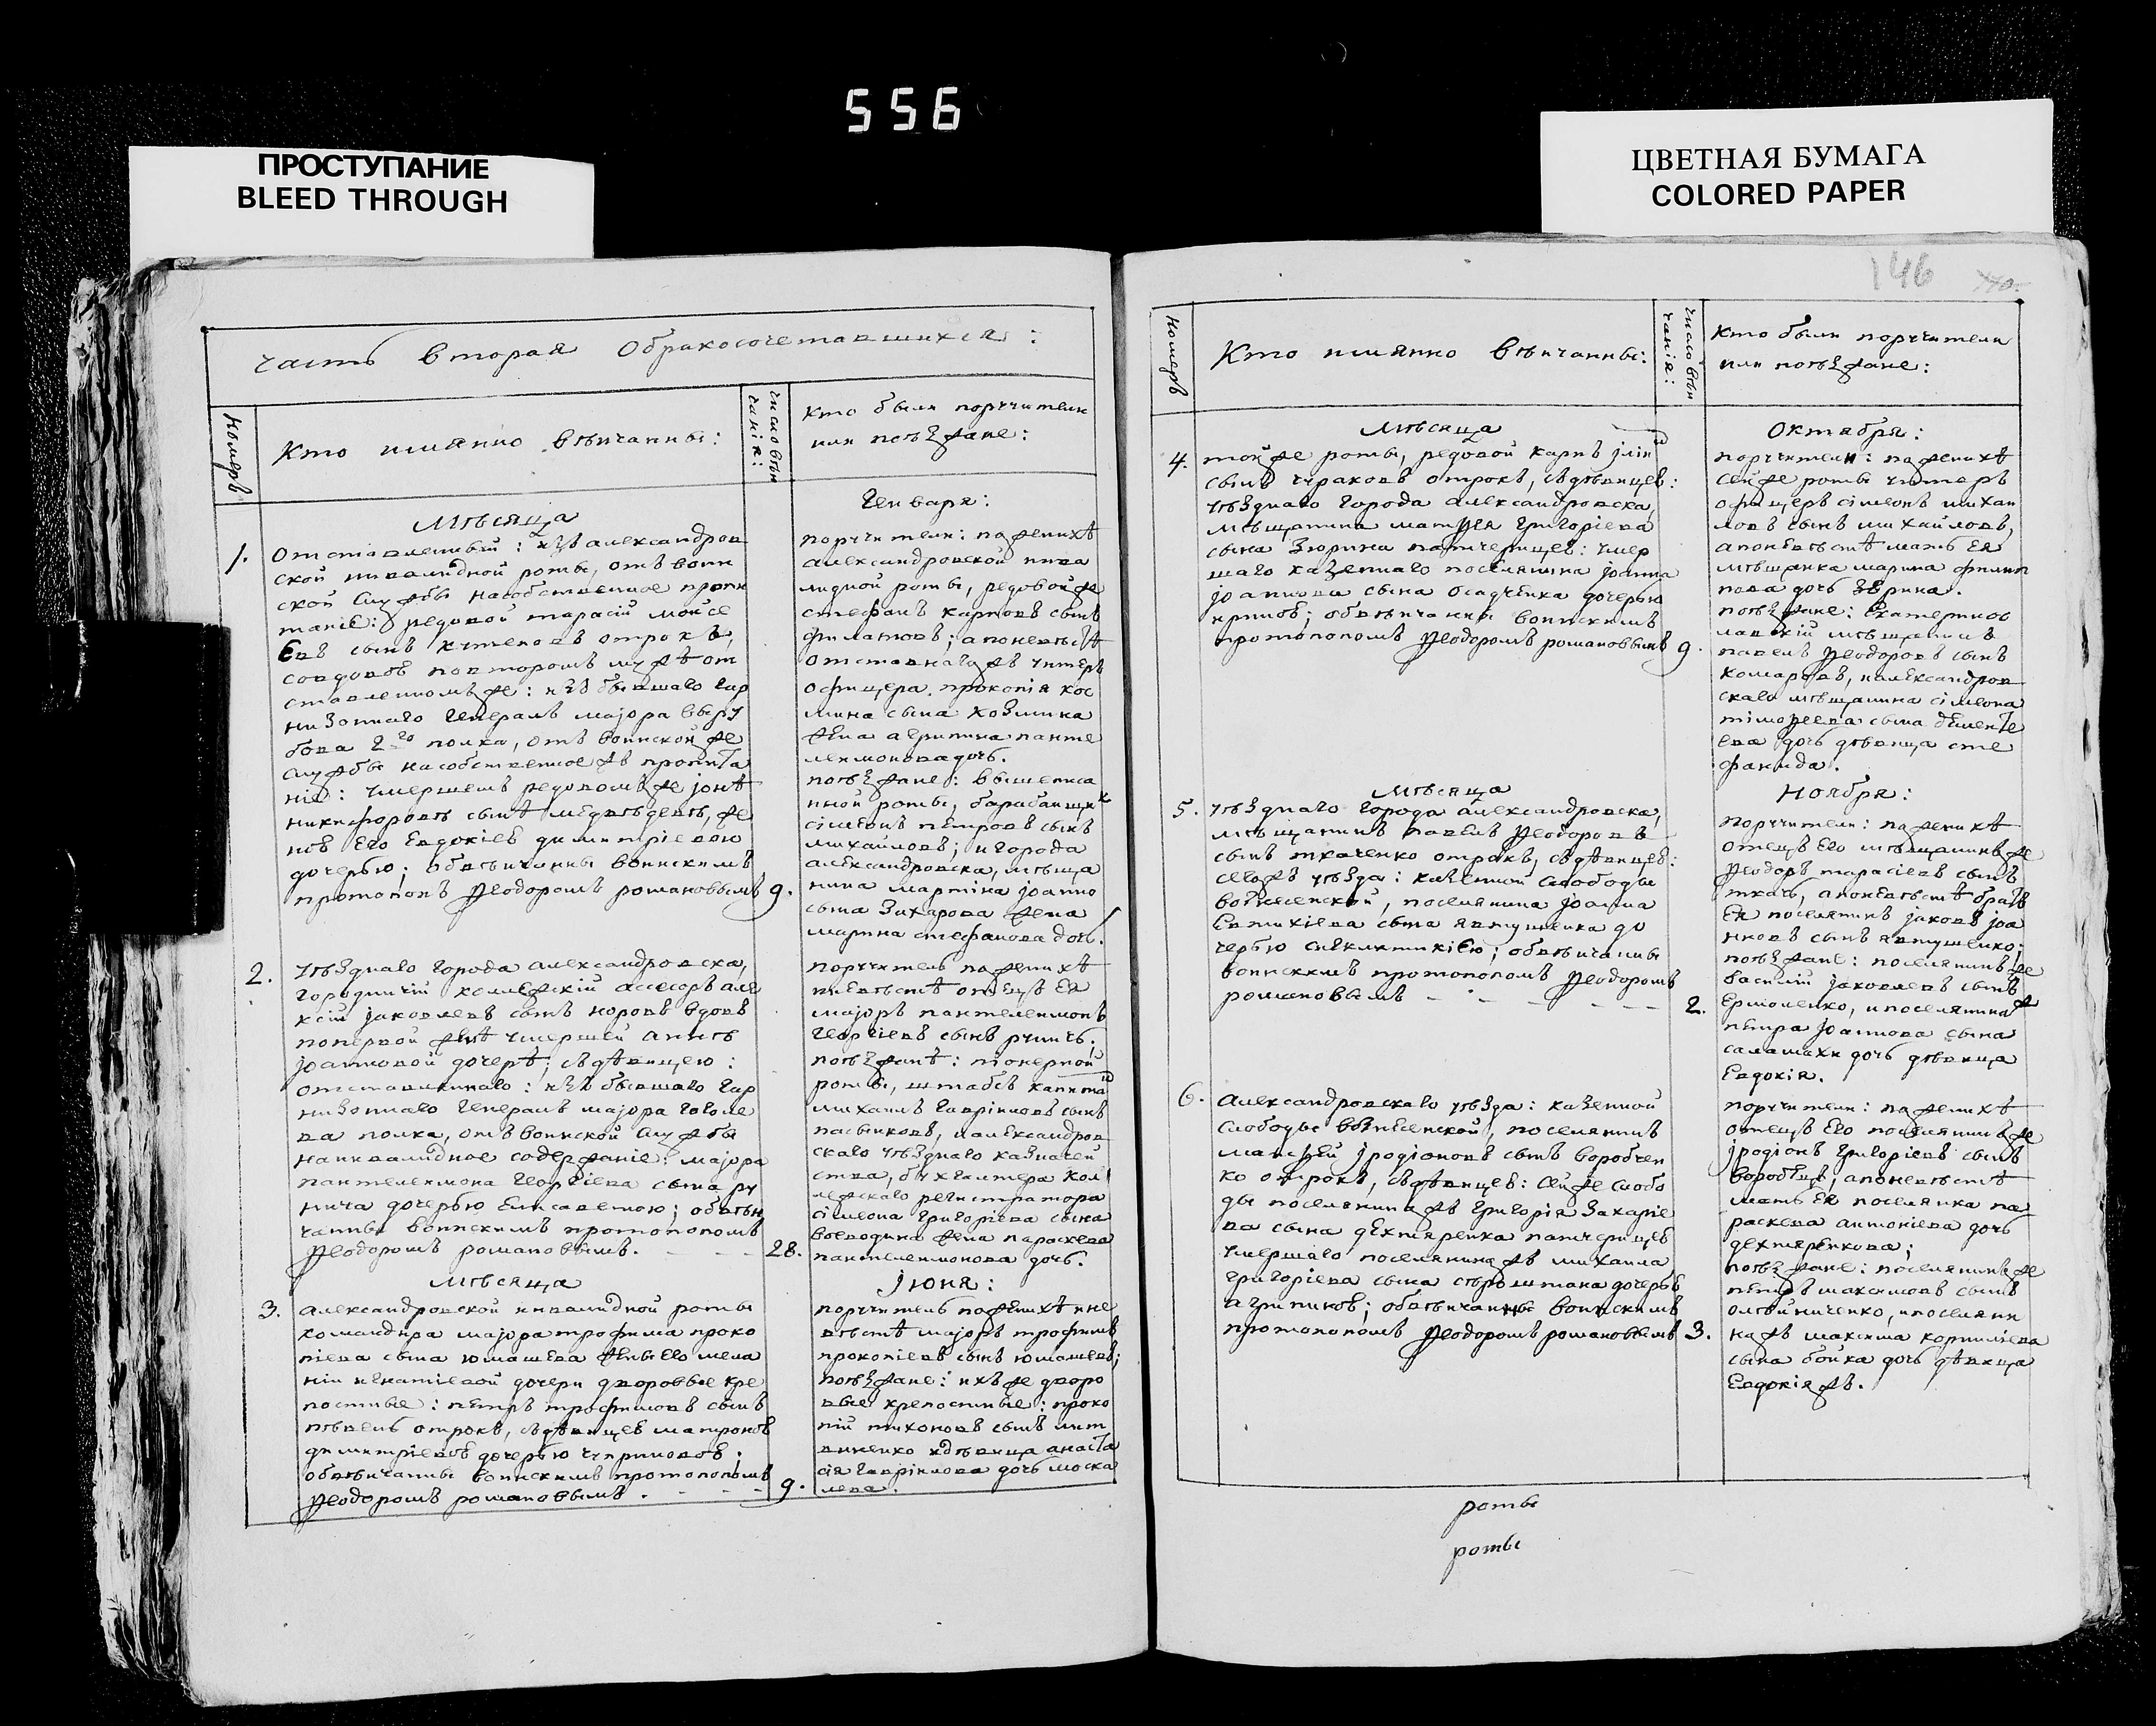 556
ПРОСТУПАНИЕ
BLEED THROUGH
ЦВЕТНАЯ БУМАГА
COLORED PAPER
146
часть вторая Обракосочетавшихся:
Номеръ
Кто имянно вѣнчанны:
число вѣн
чанія:
Кто были поручители
или поѣзжане:
Мѣсяца
Генваря:
1.
Отставленный: изъ александров
ской инвалидной роты, отъ воин
ской службы насобственное пропи
таніе: редовой тарасій мойсе
евъ сынъ отрокъ,
совдовою повторомъ мужѣ от
ставленномъ же: изъ бывшаго гар
низоннаго Генералъ маіора
2го полка, отъ воинской же
службы насобственное жъ пропита
ніе: умершемъ редовомъ же
никифоровѣ сынѣ медвѣдевѣ, же
ною его Евдокіею димитріевою
дочерью; обвѣнчанны воинскимъ
протопопъ Ѳеодоромъ романовымъ
9.
поручители: поженихѣ
александровской инва
лидной роты, редовой же
стефанъ карповъ сынъ
филатовъ; апоневѣстѣ
отставнагожъ унтеръ
офицера прокопія кос
мина сына козмина
жена агрипина панте
леимоновадочь.
поѣзжане: вышеписа
нной роты, барабанщикъ
сімеонъ петровъ сынъ
михайловъ; игорода
александровска, мѣща
нина мартіна іоанно
сына Захарова жена
марина стефанова дочь.
2.
уѣзднаго города александровска,
городничій колежскій асесоръ але
ксій яковлевъ сынъ коровъ вдовъ
попервой женѣ умершей аннѣ
іоанновой дочерѣ; сдѣвицею:
отставленнаго: изъ бывшаго гар
низоннаго Генералъ маіора
ва полка, отъ воинской службы
наинвалидное содержаніе: маіора
пантелеимона Георгіева сына ру
нича дочерью Елисаветою; обвѣн
чанны воинскимъ протопопомъ
Ѳеодоромъ романовымъ.
28.
поручитель поженихѣ
иневѣстѣ отецъ Ея
маіоръ пантелеимонъ
Георгіевъ сынъ руничъ;
поѣзжанѣ: піонерной
роты, штабсъ капитанъ
михаилъ гавріиловъ сынъ
пасынковъ, иалександров
скаго уѣзднаго казначей
ства, бухгалтера кол
лежскаго регистратора
сімеона григоріева сына
воеводина жена параскева
пантелеимонова дочь.
Мѣсяца
Іюня:
3.
александровской инвалидной роты
командира маіора трофима проко
піева сына юмашева жены Его мела
ніи игнатіевой дочери дворовые кре
постные: петръ трофимовъ сынъ
отрокъ, сдѣвицею матроною
димитріевою дочерью чуприновою;
обвѣнчанны воинскимъ протопопомъ
Ѳеодоромъ романовымъ.
9.
поручитель поженихѣ ине
вѣстѣ маіоръ трофимъ
прокопіевъ сынъ юмашевъ;
поѣзжане: ихъ же дворо
вые крепостные: проко
пій тихоновъ сынъ лит
виненко идѣвица анаста
сія гавріилова дочь моска
лева.
Номеръ
Кто имянно вѣнчанны:
число вѣн
чанія:
Кто были поручители
или поѣзжане:
Мѣсяца
Октября:
4.
тойже роты, редовой карпъ іліи
сынъ чураковъ отрокъ, сдѣвицею:
уѣзднаго города александровска,
мѣщанина матѳея григоріева
сына Зюрина патчерицею: умер
шаго казеннаго поселянина іоанна
іоаннова сына осадченка дочерью
ириною; обвѣнчанны воинскимъ
протопопомъ Ѳеодоромъ романовымъ
9.
поручители: поженихѣ
сейже роты унтеръ
офицеръ сімеонъ михаи
ловъ сынъ михайловъ,
апоневѣстѣ мать Ея
мѣщанка марина филип
пова дочь Зюрина.
поѣзжане: Екатеринос
лавскій мѣщанинъ
павелъ Ѳеодоровъ сынъ
комаровъ, иалександров
скаго мѣщанина сімеона
тімоѳеева сына демент
ева дочь дѣвица сте
фанида.
Мѣсяца
Ноября:
5.
уѣзднаго города александровска,
мѣщанинъ павелъ Ѳеодоровъ
сынъ ткаченко отрокъ, сдѣвицею:
сегожъ уѣзда: казенной слободы
вознесенской, поселянина іоанна
Евтихіева сына явтушенка до
черью синклитикіею; обвѣнчанны
воинскимъ протопопомъ Ѳеодоромъ
романовымъ
2.
поручители: поженихѣ
отецъ Его мѣщанинъ же
Ѳеодоръ тарасіевъ сынъ
ткачь, апоневѣстѣ братъ
Ея поселянинъ іаковъ іоа
нновъ сынъ явтушенко;
поѣзжане: поселянинъ же
василій іаковлевъ сынъ
Ермоленко, ипоселянина ж
петра іоаннова сына
саламахи дочь дѣвица
Евдокія.
6.
александровскаго уѣзда: казенной
слободы вознесенской, поселянинъ
матѳей іродіоновъ сынъ воробчен
ко отрокъ, сдѣвицею: сейже слобо
ды поселянинажъ григорія Захаріе
ва сына дехтяренка патчерицею
умершаго поселянинажъ михаила
григоріева сына дочерью
агрипиною; обвѣнчанны воинскимъ
протопопомъ Ѳеодоромъ романовымъ
3.
поручители: поженихѣ
отецъ Его поселянинъ же
іродіонъ григоріевъ сынъ
воробецъ; апоневѣстѣ
мать Ея поселянка па
раскева антоніева дочь
дехтяренкова;
поѣзжане: поселянинъ же
петръ максимовъ сынъ
олейниченко, ипоселяни
на жъ максима корниліева
сына бойка дочь дѣвица
Евдокія жъ.
роты
роты